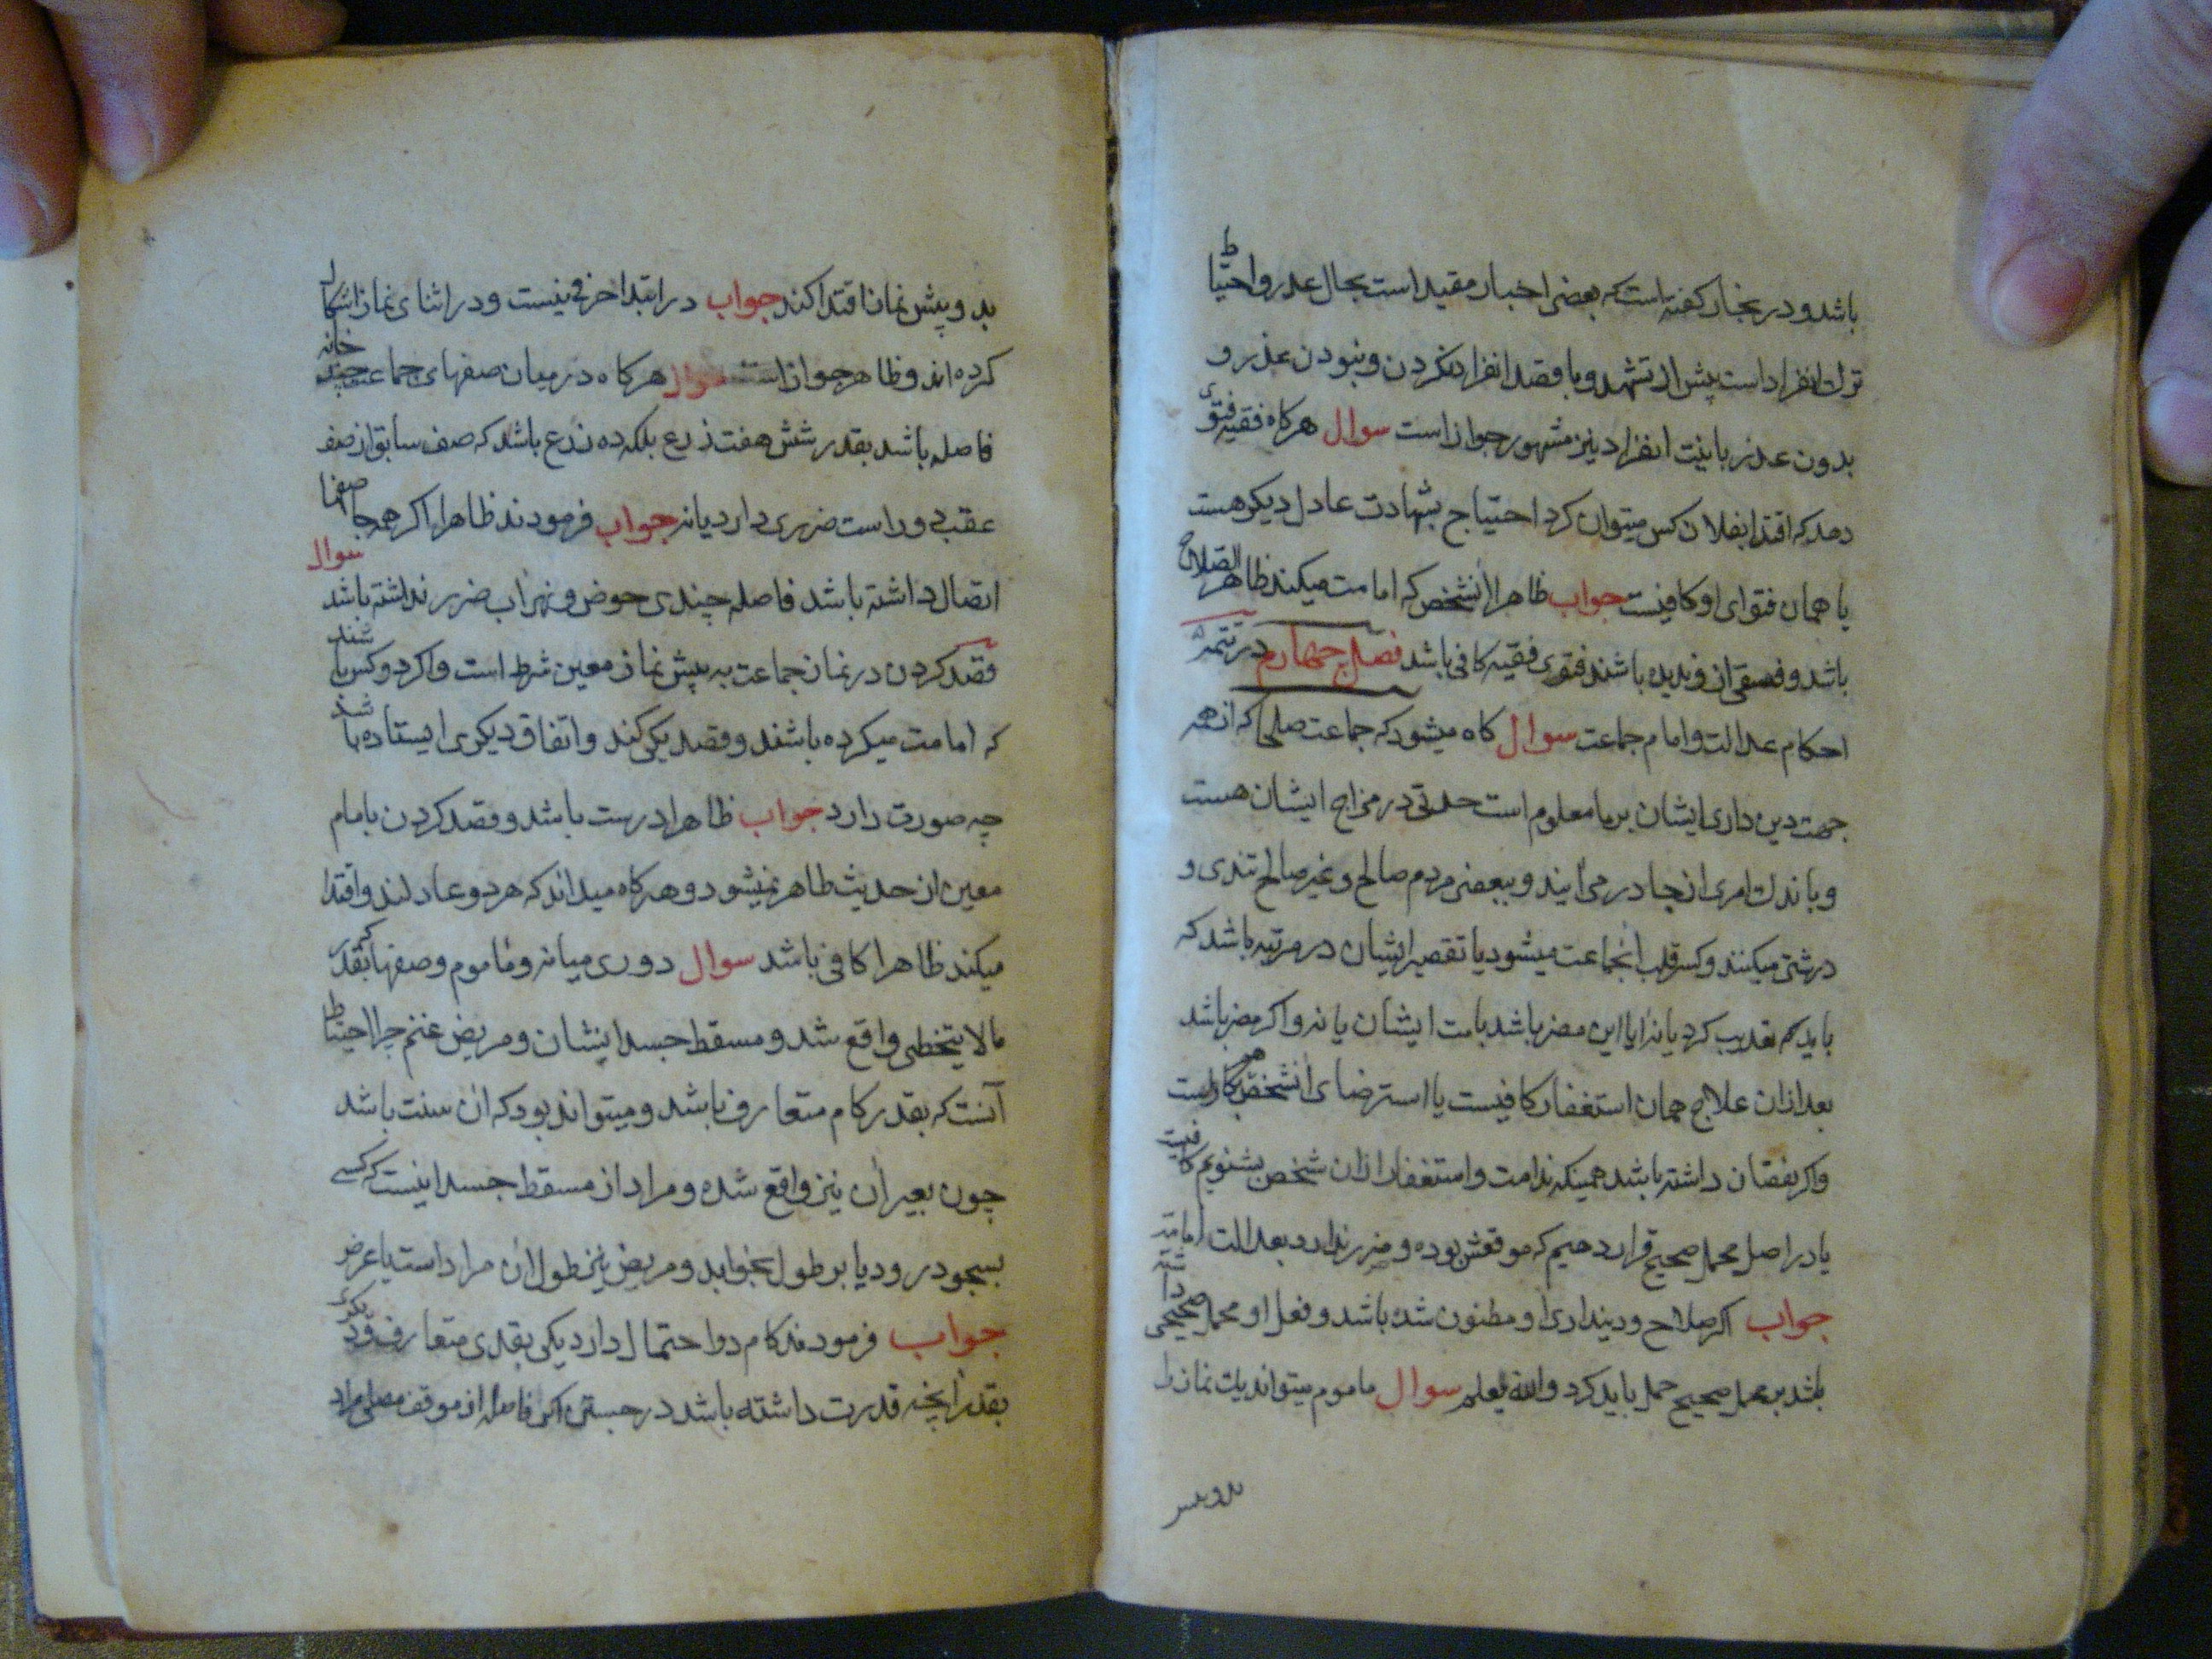 باشد و در بخار گفته است که بعضی اخبار مقید است بحال عذر و احتیاط
ترک انفراد است پیش از تشهد و با قصد انفراد نکردن و نبودن عذر و
بدون عذر با نیت انفراد نیز مشهور جواز است سوال هرگاه فقیه فتوی
دهد که اقتدا بفلان کس میتوان کرد احتیاج بشهادت عادل دیگر هست
یا همان فتوای او کافیست جواب ظاهرا آنشخص که امامت میکند ظاهر الصلاح
باشد و فسقی ازو ندیده باشند فتوی فقیه کافی باشد فصل چهارم در تتمه
احکام عدالت و امام جماعت سوال گاه میشود که جماعت صلحا که از همه
جهت دین داری ایشان بر ما معلوم است حدتی در مزاج ایشان هست
و باندک امری از جا در می آیند و ببعضی مردم صالح و غیر صالح تندی و
درشتی میکنند و کسر قلب آنجماعت میشود یا تقصیر ایشان در مرتبه باشد که
باید که تعدیب کرد یا نه آیا این مضر باشد بامت ایشان یا نه و اگر مضر باشد
بعد ازان علاج همان استغفار کافیست یا استرضای آنشخص هم در کار است
و اگر نقصان داشته باشد همینکه ندامت و استغفار ازان شخص بشنویم کافیست
یا در اصل محمل صحیح قرار دهیم که موقعش بوده و ضرر ندارد بعدالت امامت
جواب اگر صلاح و دینداری او مظنون شده باشد و فعل او محمل صحیحی داشته
باشد بر محمل صحیح حمل باید کرد والله یعلم سوال ماموم میتواند یک نماز را
بدو پیش
بدو پیش نماز اقتدا کند جواب در ابتدا حرفی نیست و در اثنای نماز اشکال
کرده اند و ظاهر جواز است سوال هرگاه در میان صفهای جماعت چند خانه
فاصله باشد بقدر شش هفت ذرع بلکه ده ذرع باشد که صف سابق از صف
عقب دور است ضرری دارد یا نه جواب فرمودند ظاهرا اگر همه جا صفها
اتصال داشته باشد فاصله چندی حوض و نهر آب ضرر نداشته باشد سوال
قصد کردن در نماز جماعت به پیش نماز معین شرط است و اگر دو کس باشند
که امامت میکرده باشند و قصد یکی کند و اتفاق دیگری ایستاده باشد
چه صورت دارد جواب ظاهرا درست باشد و قصد کردن بامام
معین از حدیث ظاهر نمیشود و هرگاه میداند که هر دو عادلند و اقتدا
میکند ظاهرا کافی باشد سوال دوری میانه و ماموم و صفها که بقدر
ما لا یتخطی واقع شد و مسقط جسد ایشان و مریض عنم چرا احتیاط
آنست که بقدر کام متعارف باشد و میتواند بود که آن سنت باشد
چون بعیر آن نیز واقع شده و مراد از مسقط جسد اینست که کسی
بسجود رود یا بر طول بخوابد و مریض نیز طول آن مراد است یا عرض
جواب فرمودند کام دو احتمال دارد یکی بقدی متعارف و دیگری
بقدر آنچه قدرت داشته باشد در جستن اکر فاصله از موقف مصلی مراد